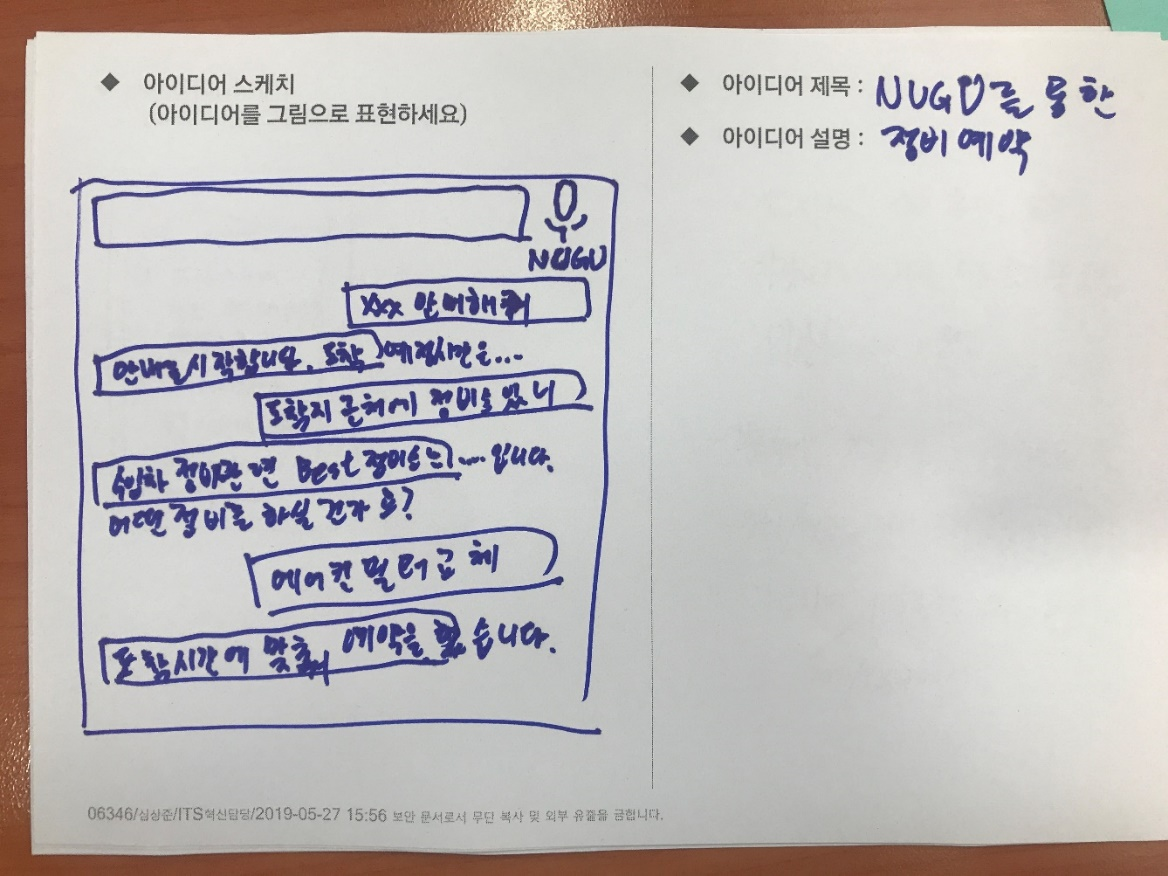 ◆ 아이디어 스케치
(아이디어를 그림으로 표현하세요)
NUGU
xxx 안내해줘
안내를 시작합니다. 도착 예정시간은...
도착지 근처에 정비소 있니
수입차 정비관련 Best 정비소는 .... 입니다.
어떤 정비를 하실 건가요?
에어컨 필터 교체
도착시간에 맞춰 예약을 했습니다.
◆ 아이디어 제목 : NUGU를 통한
◆ 아이디어 설명 : 정비 예약
06346/심상준/ITS혁신담당/2019-05-27 15:56 보안 문서로서 무단 복사 및 외부 유출을 금합니다.